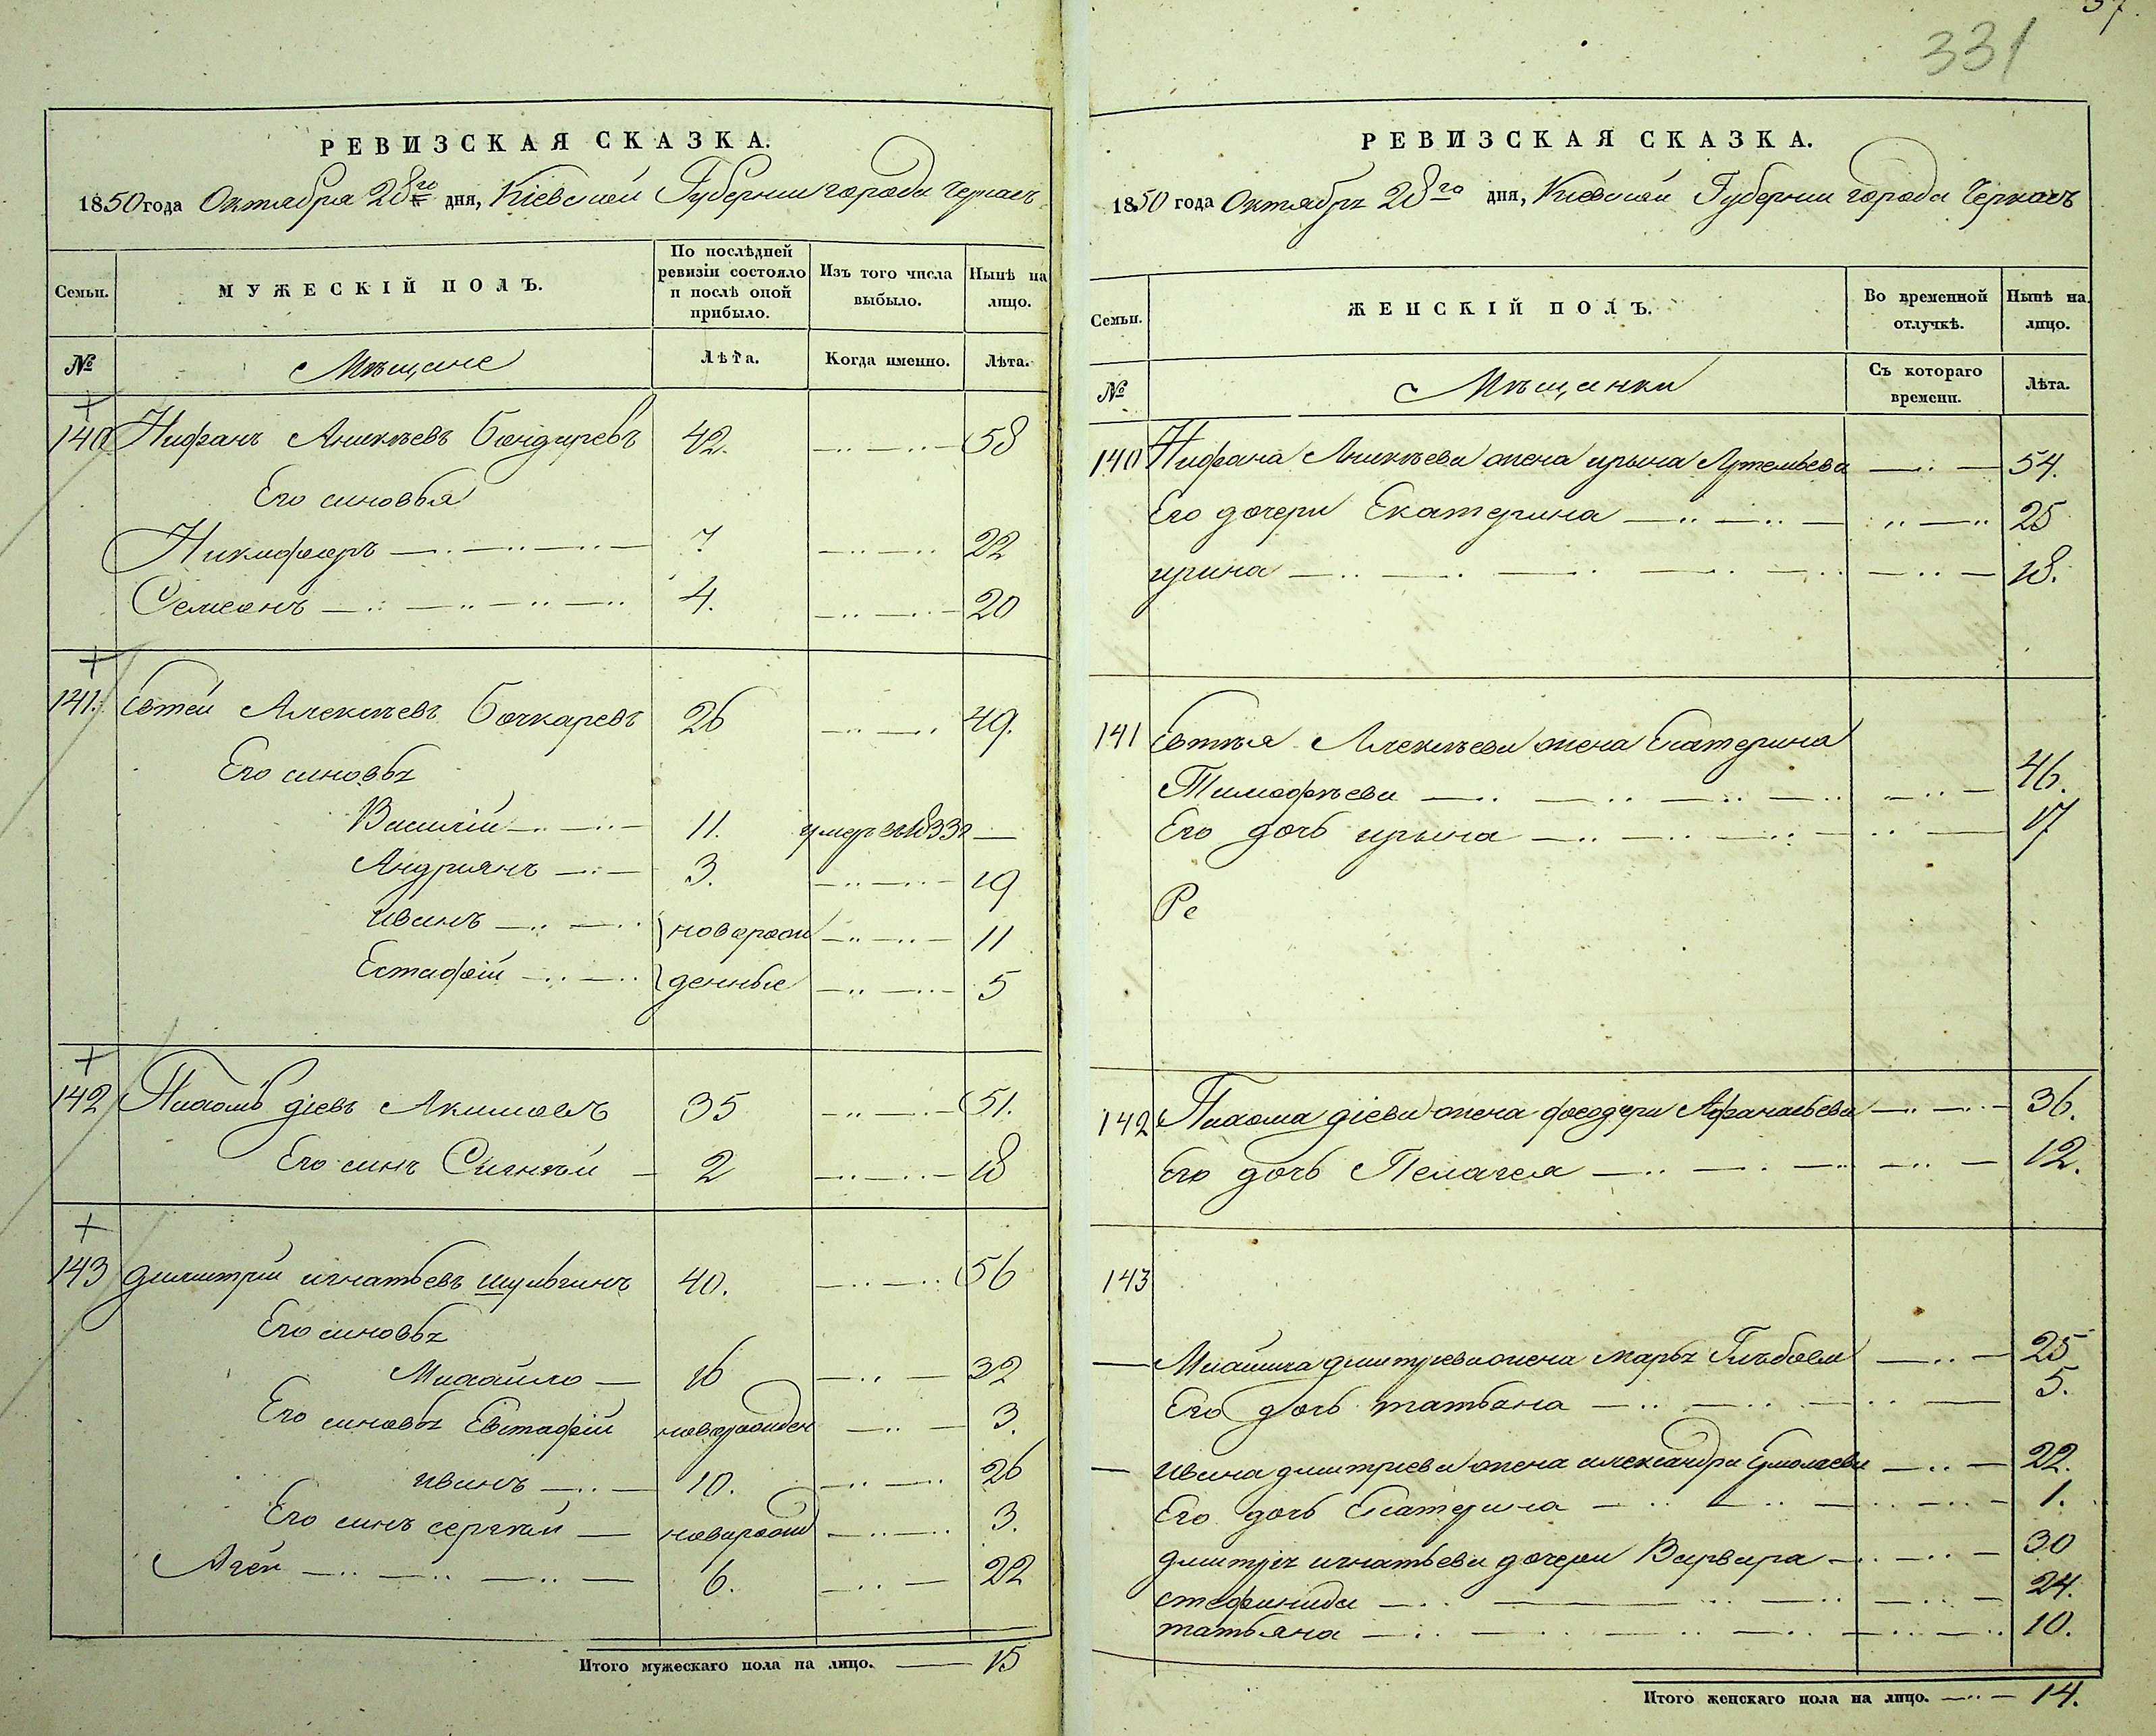 37
331
РЕВИЗСКАЯ СКАЗКА.
1850 года Октября 28го дня, Кіевской Губерніи города Черкасъ
Семьи. МУЖЕСКІЙ ПОЛЪ. По послѣдней ревизіи состояло и послѣ оной прибыло. Изъ того числа выбыло. Нынѣ на лицо.
№ Мѣщане Лѣта. Когда именно. Лѣта.
140 Аникѣевъ Бондаревъ 42. 58
Его синовья
Никифоръ 7 22
Семіонъ 4. 20
141. Евтей Алексѣевъ Бочкаревъ 26 49.
Его синовья
Василій 11. умеръ въ 1833г
Андриянъ 3. 19
иванъ новорож 11
Естафій денные 5
142 Пахомъ діевъ Акимовъ 35 51.
Его синъ 2 18
143 димитрій игнатьевъ шульгинъ 40. 56
Его синовья
Михайло 16 32
Его синовья Евстафій новорожден 3.
иванъ 10. 26
Его синъ сергѣй новорожд 3.
Агей 6. 22
Итого мужескаго пола на лицо. 15
РЕВИЗСКАЯ СКАЗКА.
1850 года Октября 28го дня, Кіевской Губерніи города Черкасъ
Семьи. ЖЕНСКІЙ ПОЛЪ. Во временной отлучкѣ. Нынѣ на лицо.
№ Мѣщанки Съ котораго времени. Лѣта.
140 Аникѣева жена ирына Артемьева 54.
Его дочери Екатерина 25
ирина 18.
141 Евтѣя Алексѣева жена Екатерина
Тимофѣева 46.
Его дочь ирына 17
Ре
142 Пахома діева жена феодора Афанасьева 36.
Его дочь Пелагея 12.
143
Михайла дмитріева жена марья Глѣбова 25
Его дочь татьяна 5.
ивана дмитріева жена александра Ермолаева 22.
Его дочь Екатерина 1.
дмитрія игнатьева дочери Варвара 30
стефанида 24.
татьяна 10.
Итого женскаго пола на лицо. 14.